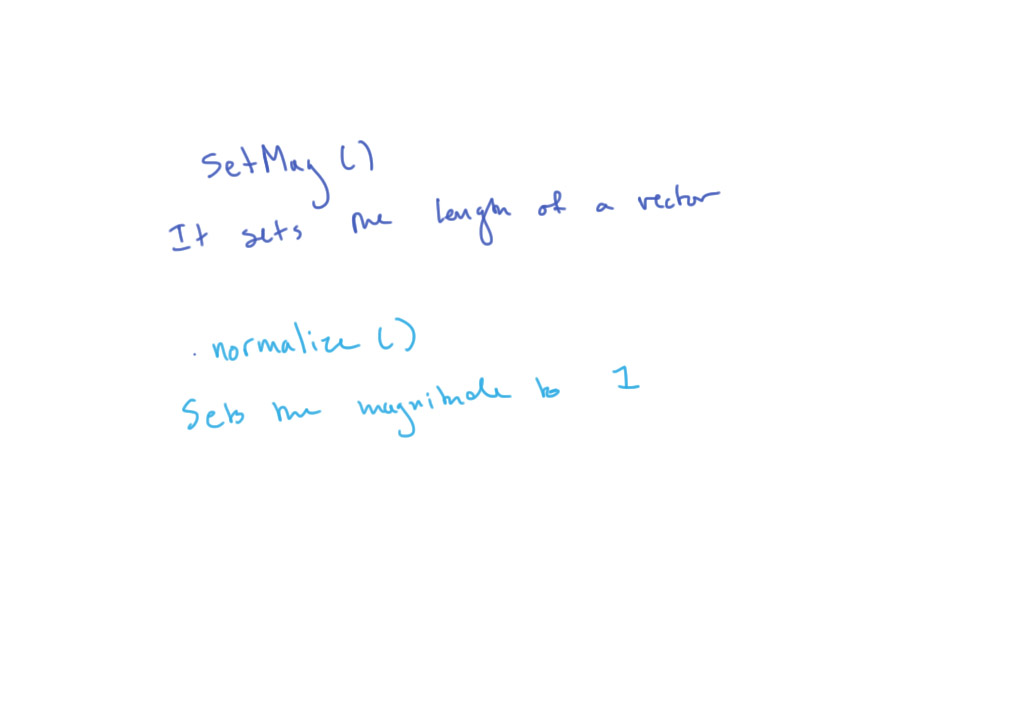 setMag ()
It sets the length of a vector
. normalize ()
Sets the magnitude to 1